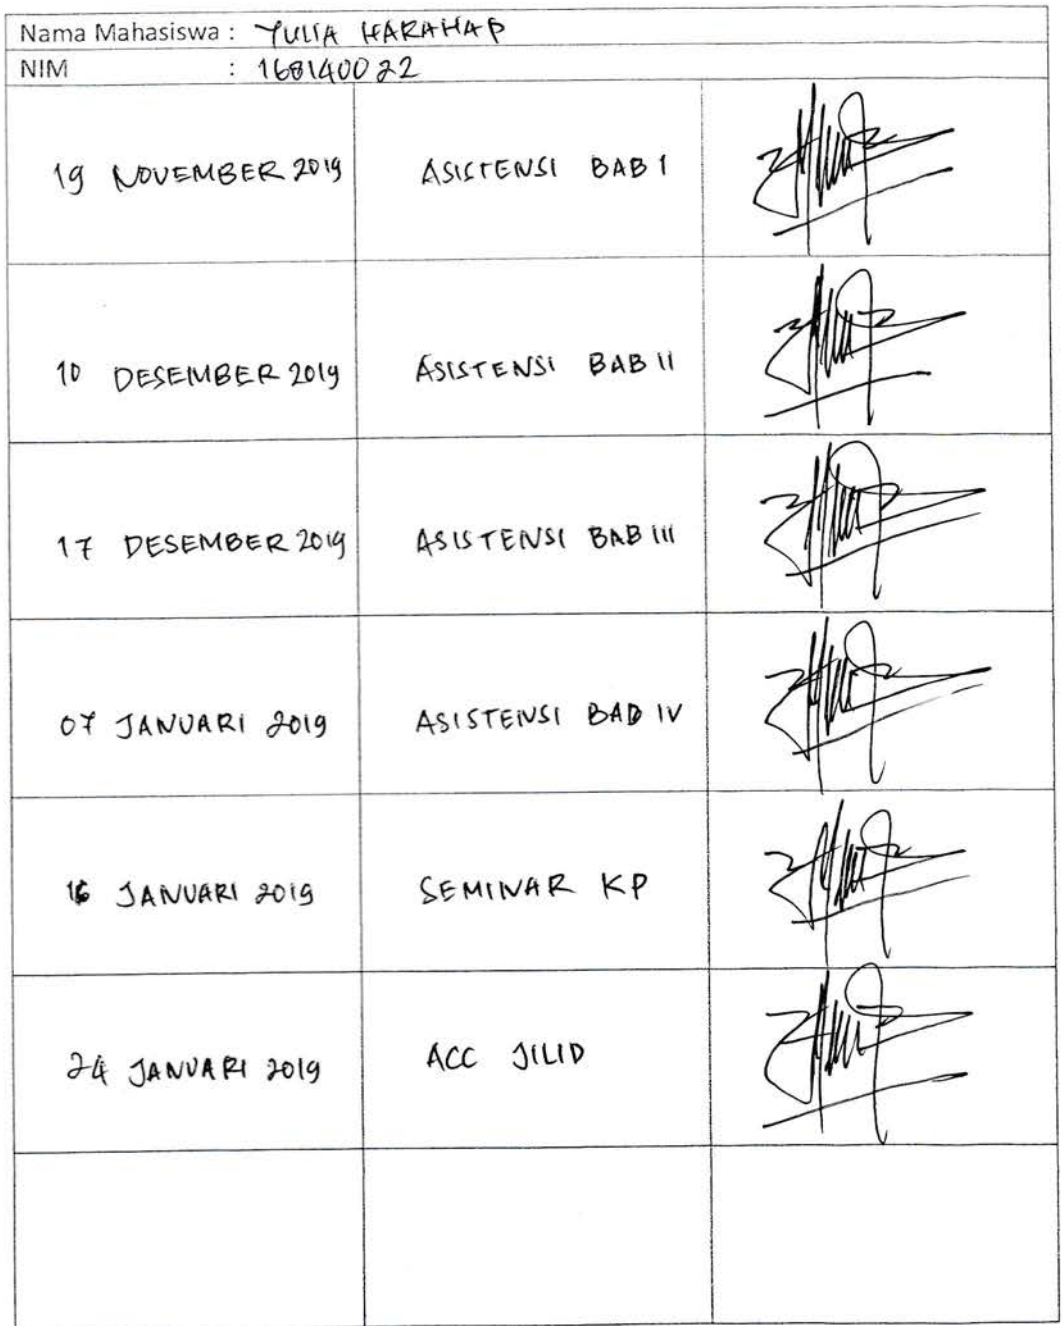 Nama Mahasiswa : YULIA HARAHAP
NIM : 168140022
19 NOVEMBER 2019 ASISTENSI BAB I
10 DESEMBER 2019 ASISTENSI BAB II
17 DESEMBER 2019 ASISTENSI BAB III
07 JANUARI 2019 ASISTENSI BAB IV
16 JANUARI 2019 SEMINAR KP
24 JANUARI 2019 ACC JILID